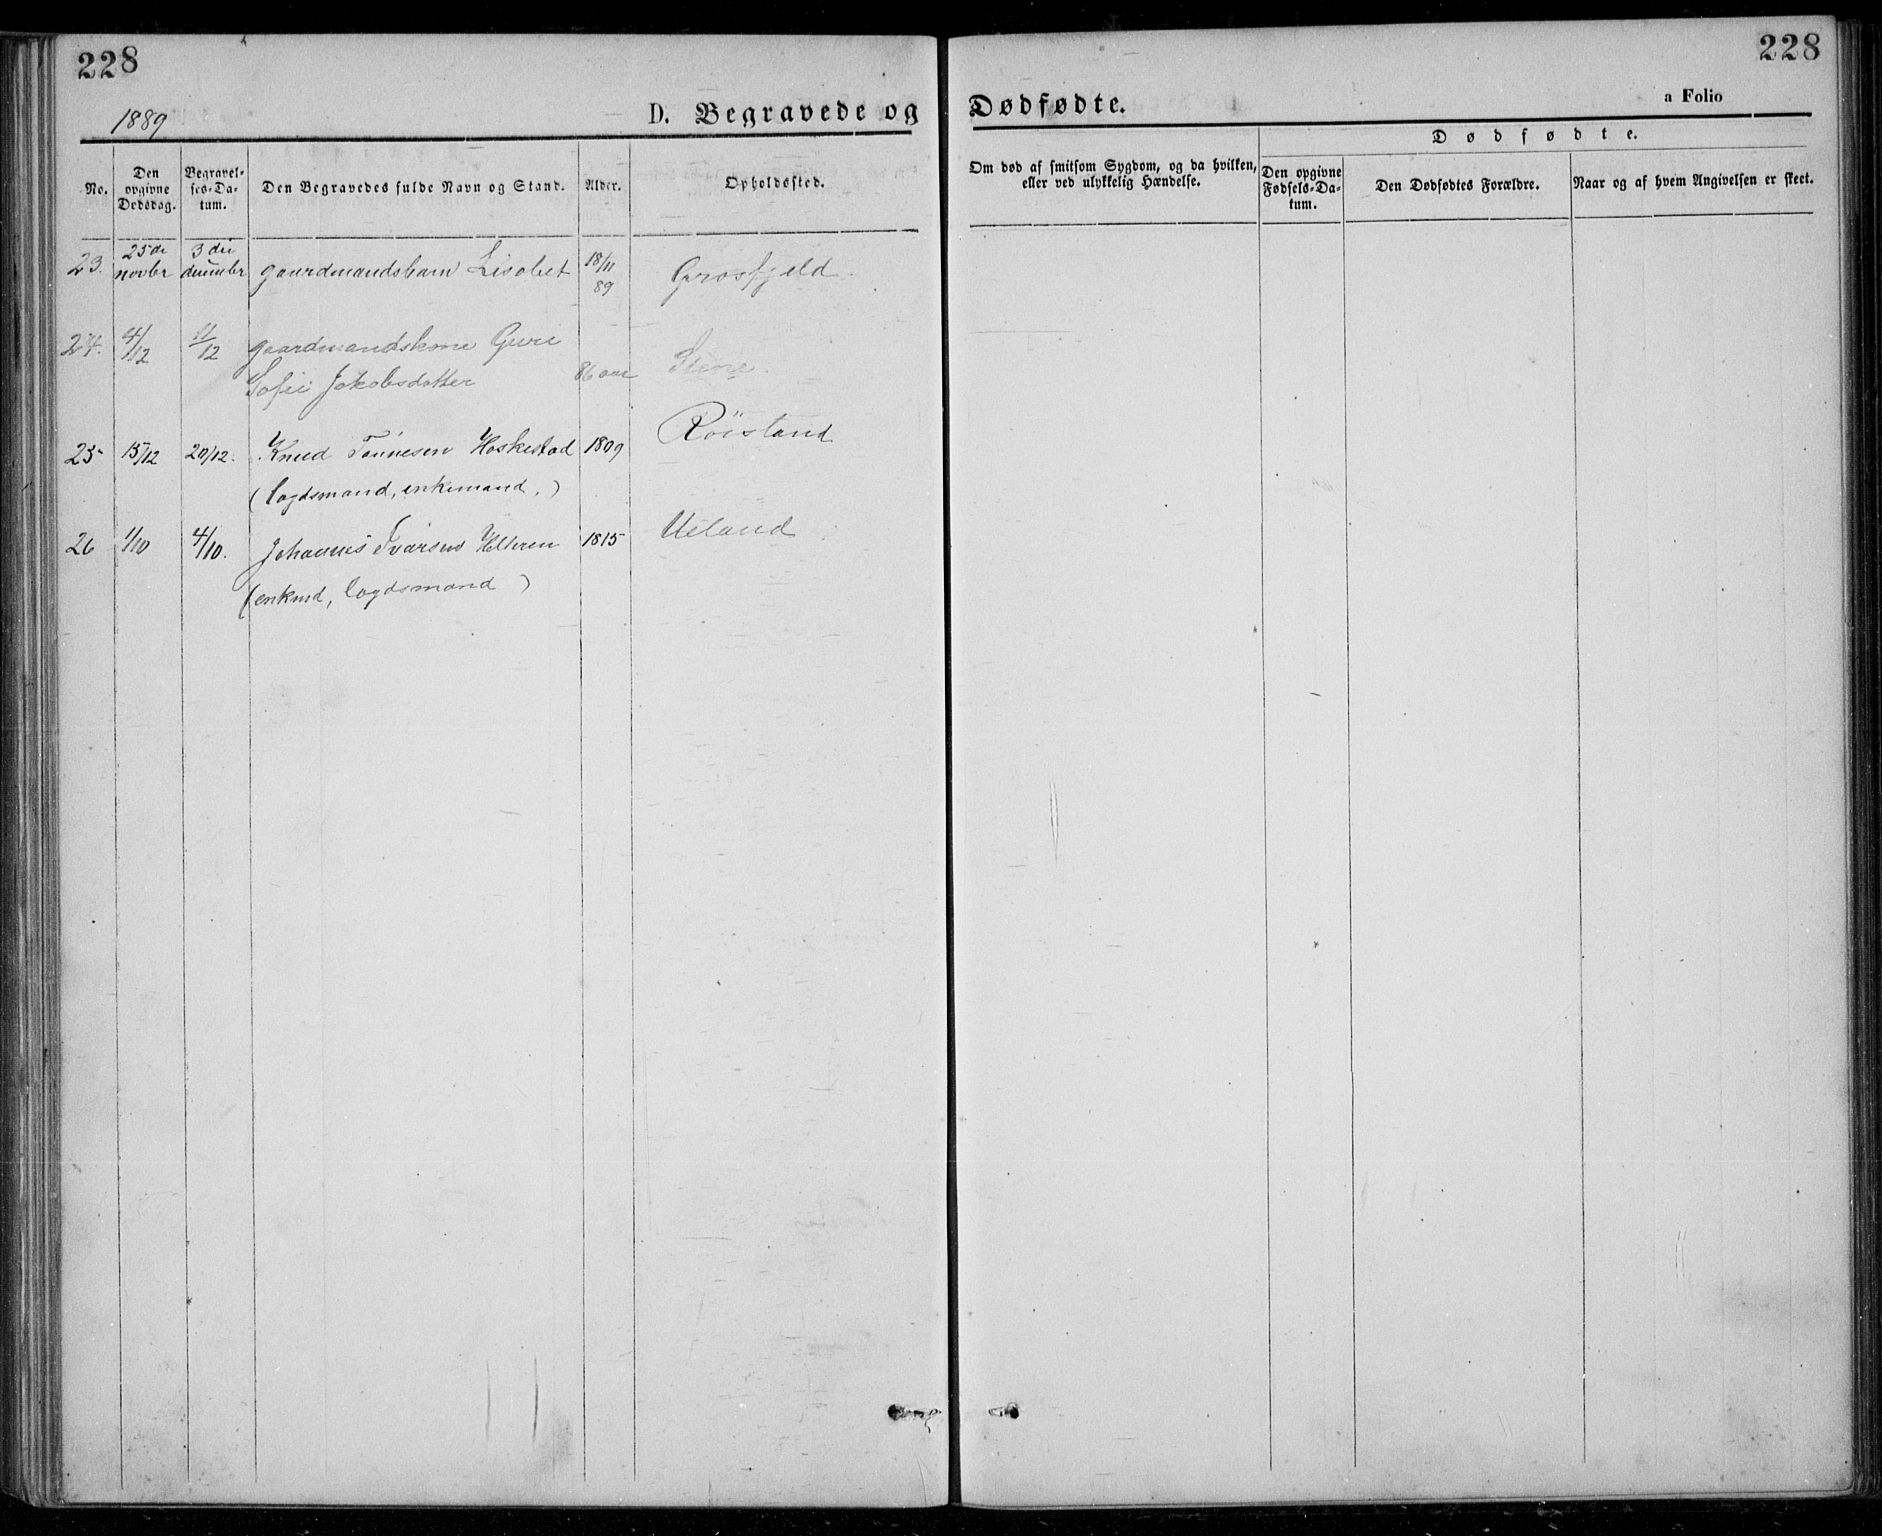 228
228
1889
D. Begravede og Dødfødte.
a Folio
Dødfødte.
No.
Den opgivne Dødsdag.
Begravelses-Datum.
Den Begravedes fulde Navn og Stand.
Alder.
Opholdssted.
Om død af smitsom Sygdom, og da hvilken, eller ved ulykkelig Hændelse.
Den opgivne Fødsels-Datum.
Den Dødfødtes Forældre.
Naar og af hvem Angivelsen er skeet.
23. 25de novbr 3die gaardmandsbarn Lisabet 18/11 89 Grosfjeld
24. 4/12 11/12 gaardmandskone Guri
Sofie Jakobsdatter 86 aar
25 15/12 20/12. Knud Tønnesen Haskestad 1809 Röisland
(Lægdsmand, enkemand,)
26 1/10 4/10. Johannes Ivarsen Helleren 1815 Ueland
(enkmd, Lægdsmand)